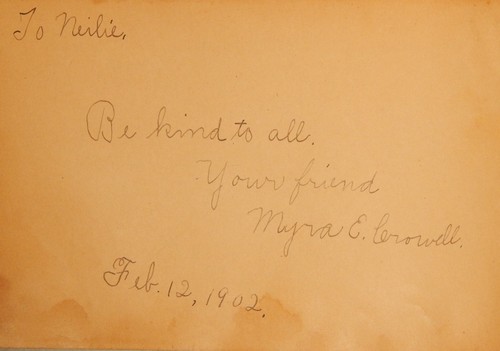 To Neilie,
Be kind to all.
Your friend
Myra E. Crowell.
Feb. 12, 1902.